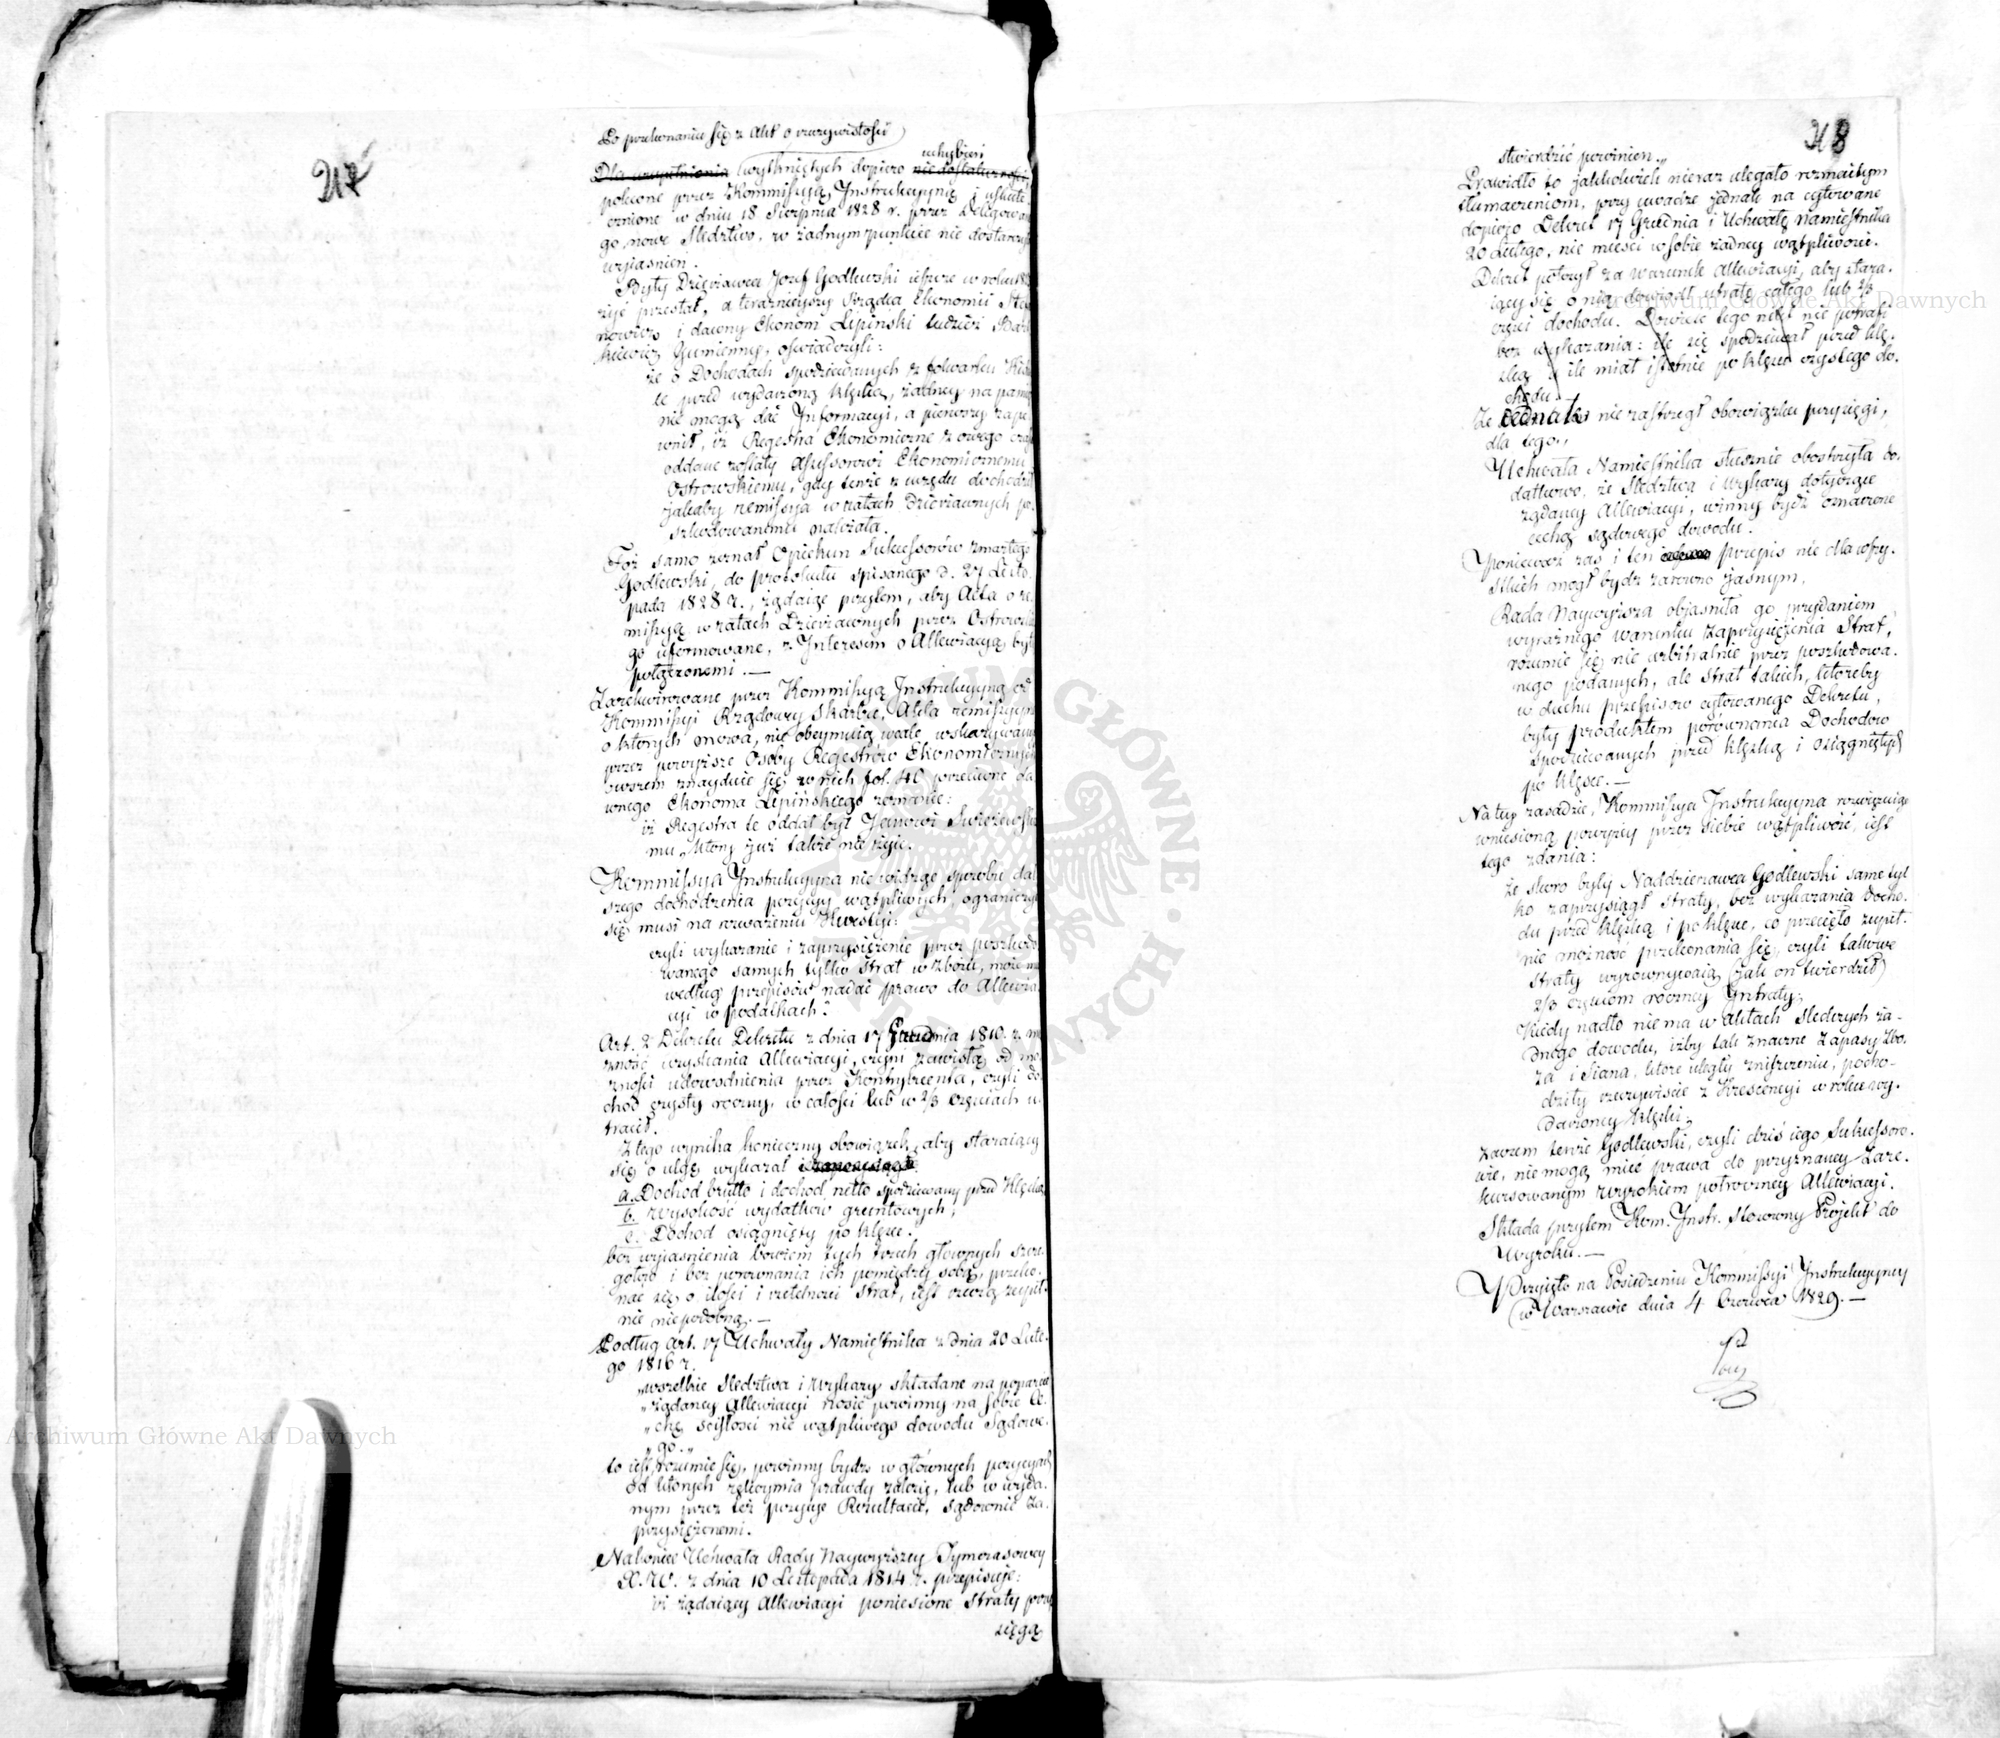 217
Po przekonaniu się z Akt o rzeczywistości
Dla uzupełnienia wytkniętych dopiero uchybień niedostateczności,
polecone przez Kommissyą Instrukcyyną i uskute-
cznione w dniu 18 Sierpnia 1828 r. przez Delegowane-
go nowe Śledztwo, w żadnym punkcie nie dostarczyło
wyiaśnień.
Były Dzierżawca Jozef Godlewski ieszcze w roku 18
żyć przestał, a teraźnieyszy Rządca Ekonomii
i dawny Ekonom Lipiński tudzież
Gumienny, oświadczyli:
że o Dochodach spodziewanych z folwarku
te przed wydarzoną klęską, żadney na pamięć
nie mogą dać Informacyi, a pierwszy zape-
wnił, iż Regestra Ekonomiczne z owego czasu
oddane zostały Assessorowi Ekonomicznemu
Ostrowskiemu, gdy tenże z urzędu dochodził
jakaby remissya w ratach Dzierżawnych po-
szkodowanemu należała.
Toż samo zeznał Opiekun Sukcessorów zmarłego
Godlewski, do protokułu spisanego d. 27 Listo-
pada 1828 r., żądaiąc przytem, aby Akta o re-
missyą w ratach Dzierżawnych przez Ostrowskie-
go uformowane, z Interesem o Allewiacyą były
połączonemi.—
Zarekwirowane przez Kommissyą Instrukcyyną od
Kommissyi Rządowey Skarbu, Akta remissyyne
o których mowa, nie obeymuią wcale wskazywanych
przez powyższe Osoby Regestrów Ekonomicznych
owszem znayduie się w nich fol. 46 przeciwne da-
wnego Ekonoma Lipińskiego zeznanie:
iż Regestra te oddał był Janowi Świeżewskie-
mu, który już także nie żyie.
Kommissya Instrukcyyna nie widząc sposobu dal-
szego dochodzenia pozycyy wątpliwych, ograniczyć
się musi na rozważeniu Kwestyi:
czyli wykazanie i zaprzysiężenie przez poszkodo-
wanego samych tylko strat w zbożu, może mu
według przepisów nadać prawo do Allewia-
cyi w podatkach?
Art. 2 Dekretu Dekretu z dnia 17 Grudnia 1810. r. mo-
żność uzyskania Allewiacyi, czyni zawisłą od mo-
żności udowodnienia przez Kontrybuenta, czyli do-
chód czysty roczny, w całości lub w 2/3 częściach u-
tracił.
Z tego wynika konieczny obowiązek, aby staraiący
się o ulgę wykazał i zaprzysiągł
a. Dochod brutto i dochod netto spodziewany przed Klęską,
b. wysokość wydatków gruntowych,
c. Dochod osiągnięty po klęsce.
bez wyiaśnienia bowiem tych trzech głównych szcze-
gołów i bez porownania ich pomiędzy sobą, przeko-
nać się o ilości i rzetelności strat, iest rzeczą zupeł-
nie niepodobną.—
Podług Art. 17 Uchwały Namiestnika z dnia 20 Lute-
go 1816 r.
„wszelkie śledztwa i wykazy składane na poparcie
„żądaney Allewiacyi nosić powinny na sobie ce-
„chę ścisłości nie wątpliwego dowodu Sądowe-
„go.„
to iest rozumie się, powinny bydź w głównych pozycyach
od których rękoymia prawdy zależy, lub w wyda-
nym przez też pozycye Rezultacie, sądownie za-
przysiężonemi.
Nakoniec Uchwała Rady Naywyższey Tymczasowey
X. W. z dnia 10 Listopada 1814 r. przepisuje:
iż żądaiący Allewiacyi poniesione Straty przy-
sięgą
218
stwierdzić powinien.„
Prawidło to jakkolwiek nieraz ulegało rozmaitym
tłumaczeniom, przy uwadze jednak na cytowane
dopiero Dekret 17 Grudnia i Uchwałę Namiestnika
20 Lutego, nie mieści w sobie żadney wątpliwości.
Dekret położył za warunek Allewiacyi, aby stara-
iący się o nią dowiodł utratę całego lub 2/3
części dochodu. Dowieść tego nikt nie potrafi
bez wykazania: ile się spodziewał przed klę-
ską i ile miał istotnie po klęsce czystego do-
chodu.
Że jednak nie zastrzegł obowiązku przysięgi,
dla tego,
Uchwała Namiestnika słusznie obostrzyła do-
datkowo, że śledztwa i wykazy dotyczące
żądaney Allewiacyi, winny bydź oznaczone
cechą sądowego dowodu.
Ponieważ zaś i ten przepis nie dla wszy-
stkich mogł bydź zarówno jasnym,
Rada Naywyższa objaśniła go przydaniem
wyraźnego warunku zaprzysiężenia Strat,
rozumie się nie arbitralnie przez poszkodowa-
nego podanych, ale strat takich, któreby
w duchu przepisow cytowanego Dekretu,
były produktem porównania Dochodow
spodziewanych przed klęską i osiągniętych
po klęsce.—
Na tey zasadzie, Kommissya Instrukcyyna rozwięzuiąc
wniesioną powyżey przez siebie wątpliwość, iest
tego zdania:
że skoro były Naddzierżawca Godlewski same tyl-
ko zaprzysiągł straty, bez wykazania docho-
du przed klęską i po klęsce, co przecięło zupeł-
nie możność przekonania się, czyli takowe
straty wyrównywaią (jak on twierdził)
2/3 częściom roczney Intraty;
kiedy nadto nie ma w Aktach śledczych ża-
dnego dowodu, iżby tak znaczne zapasy Zbo-
ża i Siana, które uległy zniszczeniu, pocho-
dziły rzeczywiście z Krescencyi w roku wy-
darzoney klęski;
zaczem tenże Godlewski, czyli dziś iego Sukcessoro-
wie, nie mogą mieć prawa do przyznaney zare-
kursowanym wyrokiem potroczney Allewiacyi.
Składa przytem Kom. Instr. stosowny Projekt do
Wyroku.—
Przyięto na Posiedzeniu Kommissyi Instrukcyyney
w Warszawie dnia 4 Czerwca 1829.—
Archiwum Główne Akt Dawnych
Archiwum Główne Akt Dawnych